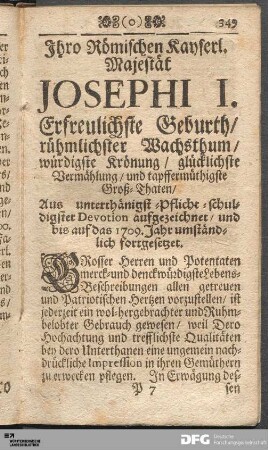 (o) 349
Ihro Römischen Kayserl.
Majestät
JOSEPHI I.
Erfreulichste Geburth/
rühmlichster Wachsthum/
würdigste Krönung/ glücklichste
Vermählung/ und tapffermüthigste
Groß-Thaten/
Aus unterthänigst-Pflicht-schul-
digster Devotion aufgezeichnet/ und
bis auf das 1709. Jahr umständ-
lich fortgesetzet.
GRosser Herren und Potentaten
merck- und denckwürdigste Lebens-
Beschreibungen allen getreuen
und Patriotischen Hertzen vorzustellen/ ist
jederzeit ein wol-hergebrachter und Ruhm-
belobter Gebrauch gewesen/ weil Dero
Hochachtung und trefflichste Qualitäten
bey dero Unterthanen eine ungemein nach-
drückliche Impression in ihren Gemüthern
zu erwecken pflegen. In Erwägung des-
P 7 sen
DFG Deutsche
Forschungsgemeinschaft